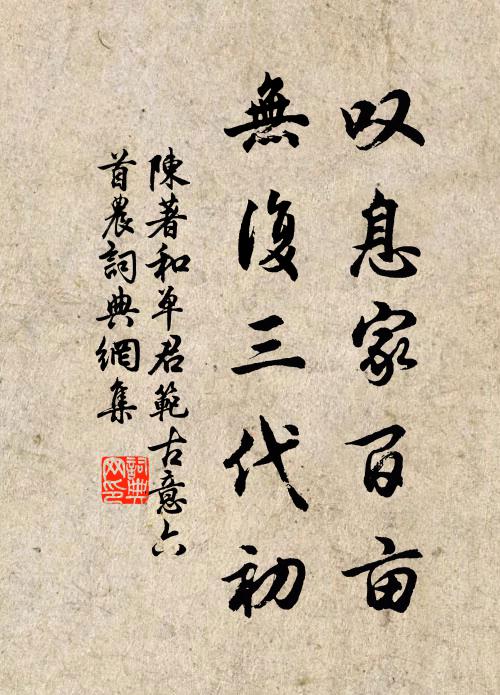 叹息家百亩
無復三代初
陳著和单君範古意六
首農詞典網集
詞典网印